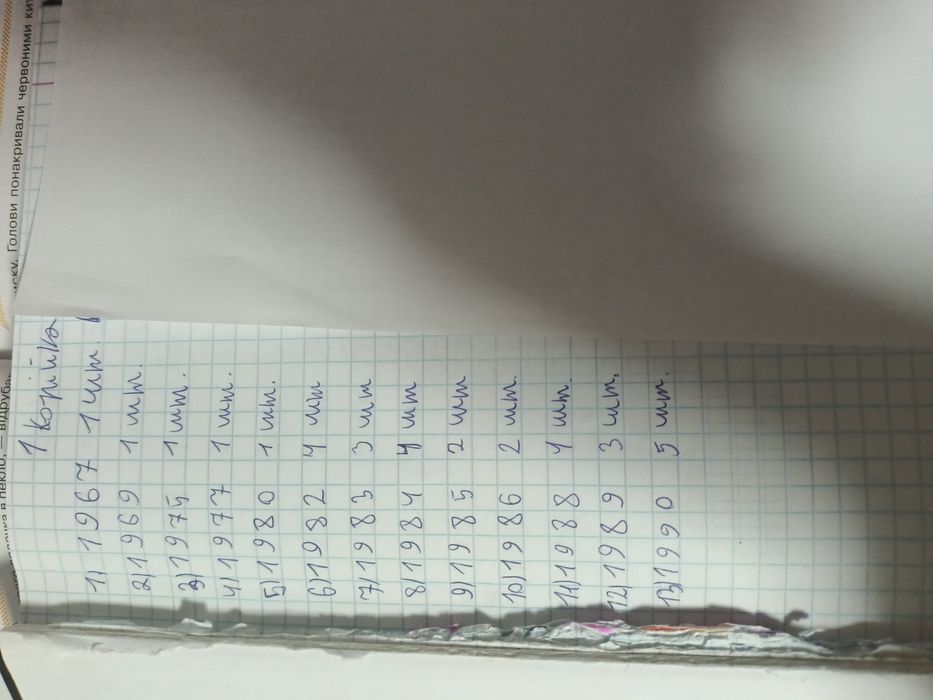 1 копійка
1) 1967 1 шт.
2) 1969 1 шт.
3) 1975 1 шт.
4) 1977 1 шт.
5) 1980 1 шт.
6) 1982 4 шт
7) 1983 3 шт
8) 1984 4 шт
9) 1985 2 шт
10) 1986 2 шт.
11) 1988 4 шт.
12) 1989 3 шт.
13) 1990 5 шт.
Голови понакривали червоними
в пекло, — відруба